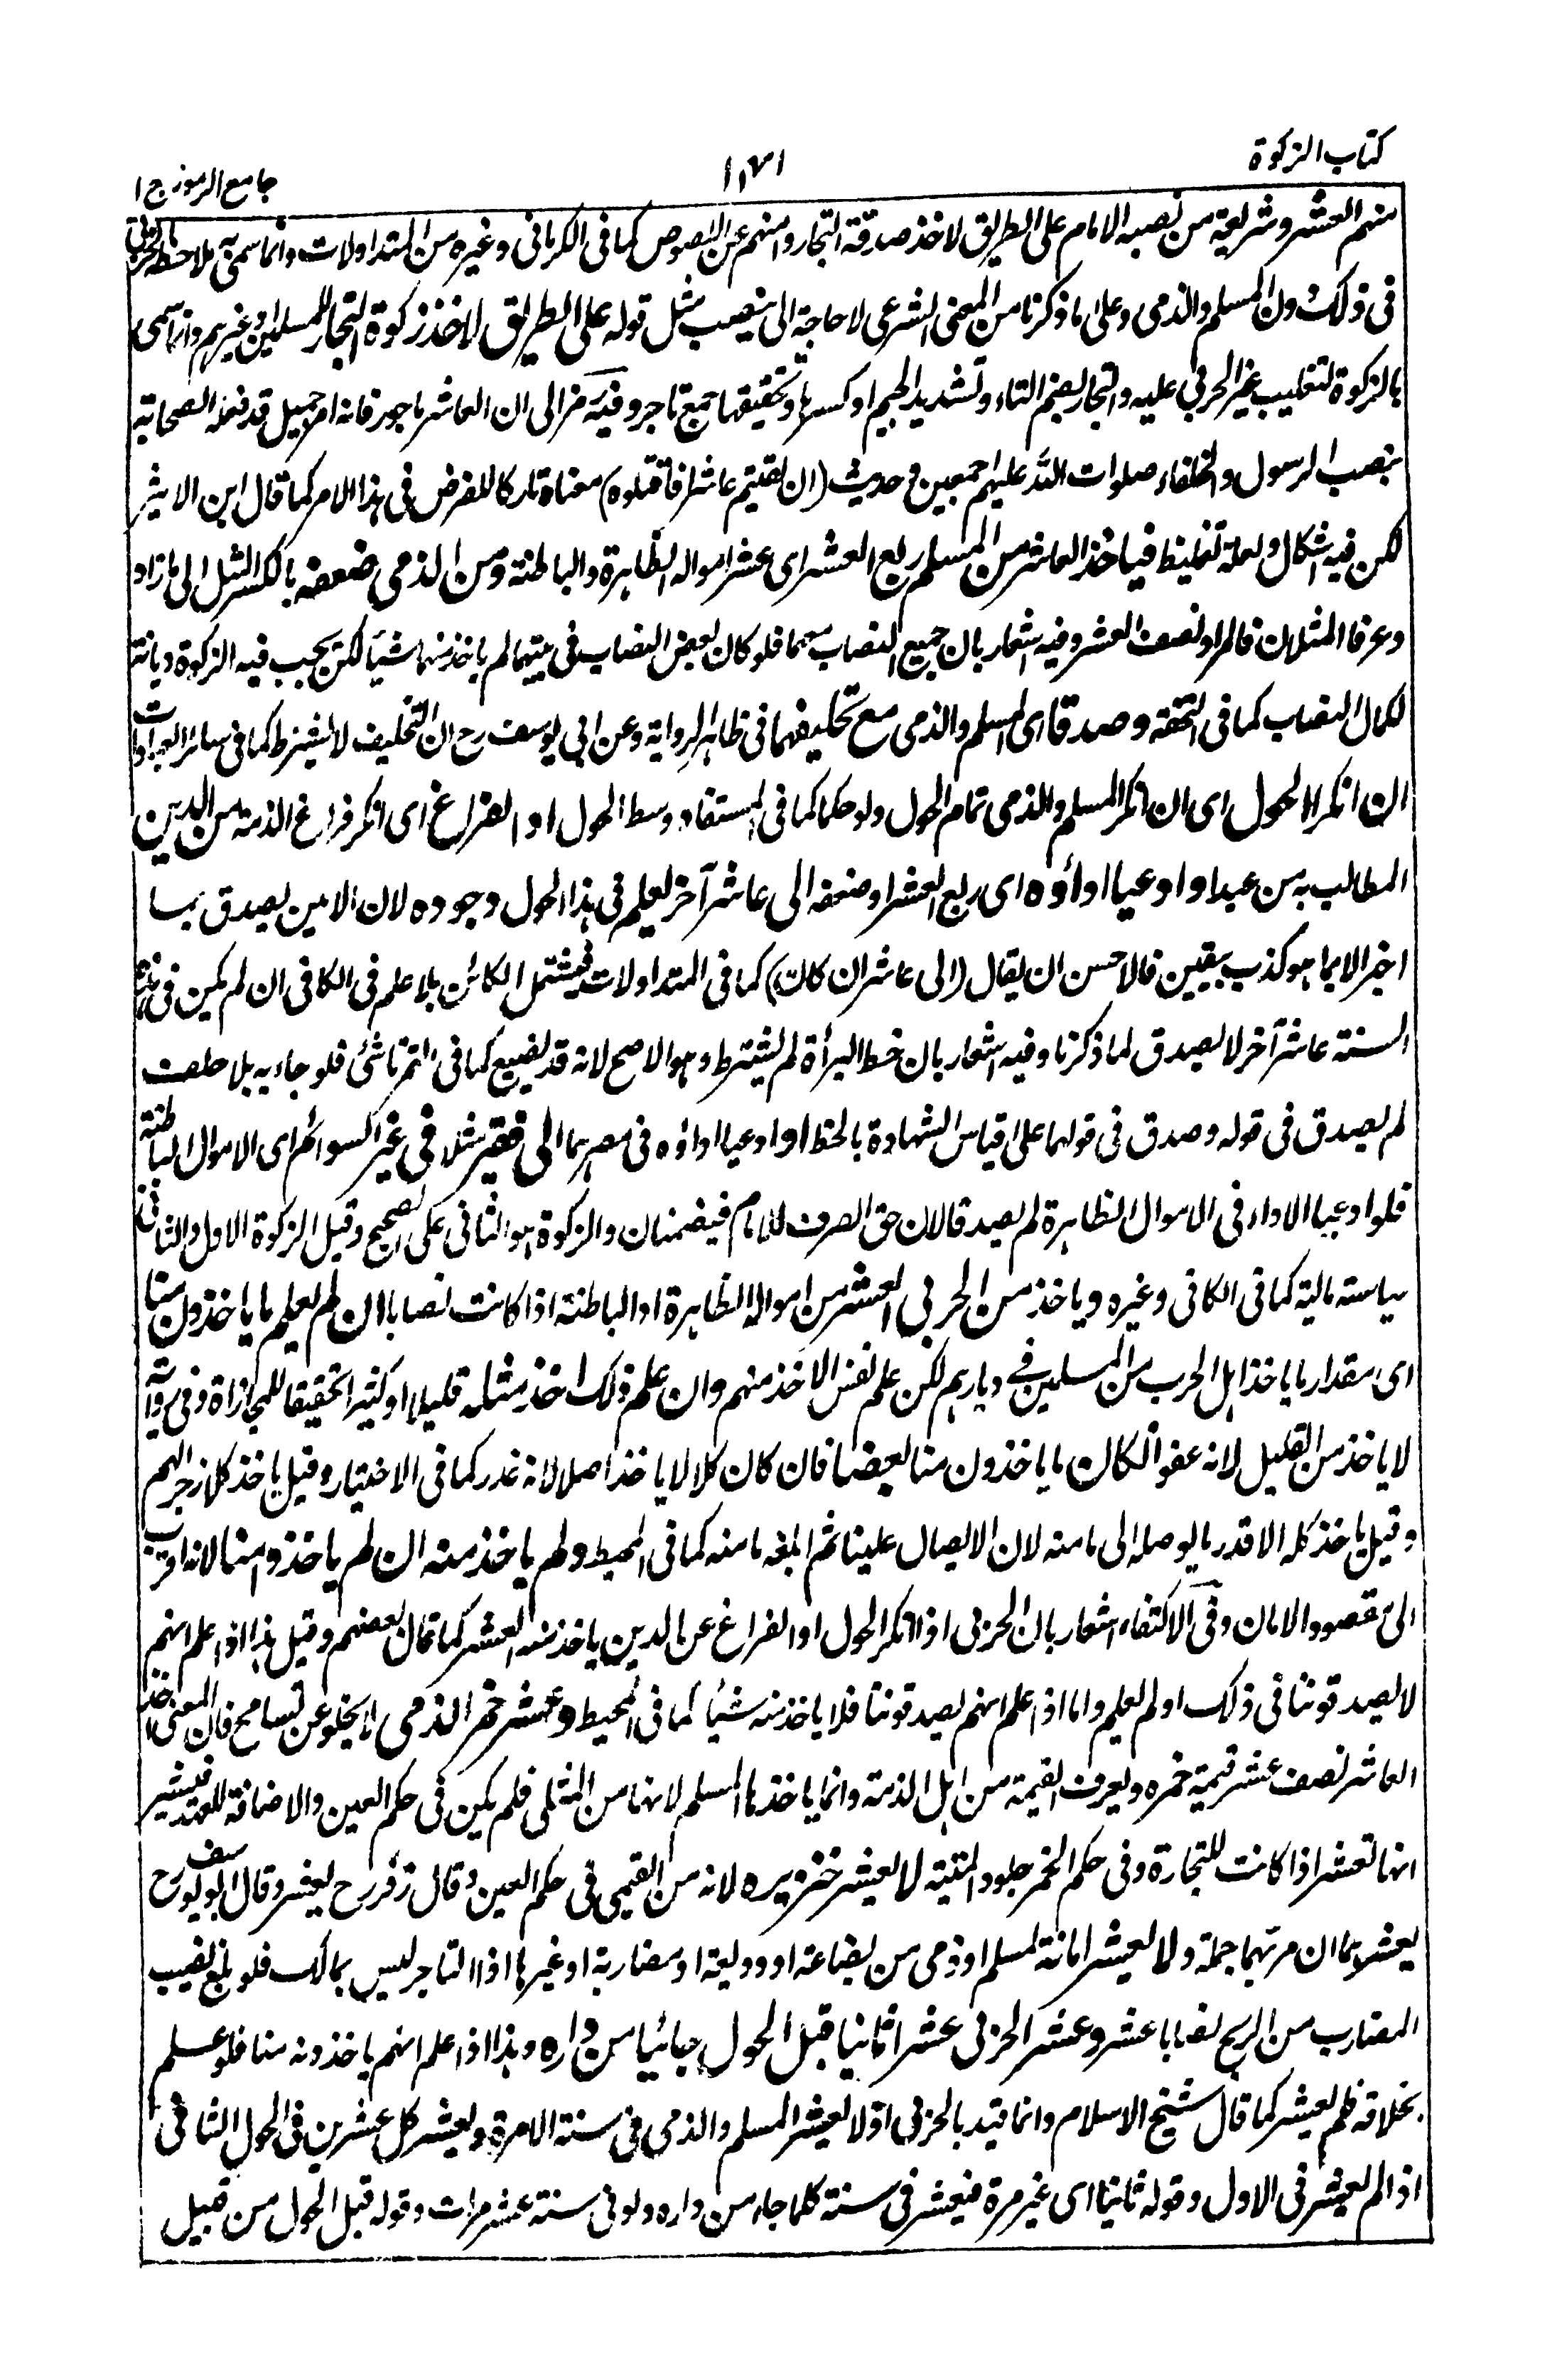 كتاب الزكوة
جامع الرموز ج ١
منهم العشر وشريعة من نصبه الامام على الطريق لاخذ صدقة التجار وامنهم عن اللصوص كما فى الكرمانى وغيره من المتداولات وانما سمى به ملاحظة لحربى
فى ذلك دون المسلم والذمى وعلى ما ذكرنا من المعنى الشرعى لا حاجة الى ينصب مثل قوله على الطريق لاخذ زكوة التجار المسلمين وغيرهم وانما سمى
بالزكوة لتغليب غير الحربى عليه والتجار بضم التاء وتشديد الجيم او كسرها وتخفيفها جمع تاجر وفيه رمز الى ان العاشر ماجور فانه امر جميل قد فعله الصحابة
بنصب الرسول والخلفاء صلوات الله عليهم اجمعين و حديث (ان لقيتم عاشرا فاقتلوه) معناه تاركا للفرض فى هذا الامر كما قال ابن الاثير
لكن فيه اشكال ولعله تغليظ فياخذ العاشر من المسلم ربع العشر اى عشر امواله الظاهرة والباطنة ومن الذمى ضعفه بالكسر المثل الى ما زاد
وعرفا المثلان فالمراد نصف العشر وفيه اشعار بان جميع النصاب معهما فلو كان بعض النصاب فى بيتهما لم ياخذ منهما شيأ لكن يجب فيه الزكوة ديانة
لكمال النصاب كما فى التحفة وصدقا اى المسلم والذمى مع تحليفهما فى ظاهر الرواية وعن ابى يوسف رح ان التحليف لا يشترط كما فى سائر العبادات
ان انكرا الحول اى ان انكر المسلم والذمى تمام الحول ولو حكما كما فى المستفاد وسط الحول او الفراغ اى انكر فراغ الذمة من الدين
المطالب به من عبد او ادعيا اداؤه اى ربع العشر او ضعفه الى عاشر آخر يعلم فى هذا الحول وجوده لان الامين يصدق بما
اخبر الا بما هو كذب بيقين فالاحسن ان يقال (الى عاشر ان كان) كما فى المتداولات فيشتمل الكائن بلا علم فى الكافى ان لم يكن فى تلك
السنة عاشر آخر لا يصدق لما ذكرنا وفيه اشعار بان خط البرأة لم يشترط وهو الاصح لانه قد يضيع كما فى التمرتاشى فلو جاء به بلا حلف
لم يصدق فى قوله وصدق فى قولهما على قياس الشهادة بالخط او ادعيا اداؤه فى مصرهما الى فقير مثلا فى غير السوائم اى الاموال الباطنة
فلو ادعيا الاداء فى الاموال الظاهرة لم يصدقا لان حق الصرف للامام فيضمنان والزكوة هو الثانى على الصحيح وقيل الزكوة الاول والثانى
سياسة مالية كما فى الكافى وغيره وياخذ من الحربى العشر من امواله الظاهرة او الباطنة اذا كانت نصابا ان لم يعلم ما ياخذون منا
اى مقدار ما ياخذ اهل الحرب من المسلمين فى ديارهم لكن علم نفس الاخذ منهم وان علم ذلك اخذ مثله قليلا او كثيرا تحقيقا للمجازاة وفى رواية
لا ياخذ من القليل لانه عفو ان كان ما ياخذون منا بعضا فان كان كلا لا ياخذ اصلا لانه غدر كما فى الاختيار وقيل ياخذ كلا زجرا لهم
وقيل ياخذ كله الا قدر ما يوصله الى مامنه لان الايصال علينا ثم ابلغه مامنه كما فى المحيط ولم ياخذ منه ان لم ياخذوا منا لانه اقرب
الى مقصود الامان وفى الاكتفاء اشعار بان الحربى اذا انكر الحول او الفراغ عن الدين ياخذ منه العشر كما قال بعضهم وقيل هذا اذا علم انهم
لا يصدقوننا فى ذلك او لم يعلم واما اذا علم انهم يصدقوننا فلا ياخذ منه شيأ كما فى المحيط وعشر خمر الذمى لا يخلو عن تسامح فان المعنى اخذ
العاشر نصف عشر قيمة خمره ويعرف القيمة من اهل الذمة وانما ياخذها المسلم لانها من المثلى فلم يكن فى حكم العين والاضافة للعهد فيشير
انها تعشر اذا كانت للتجارة وفى حكم الخمر جلود الميتة لا يعشر خنزيره لانه من القيمى فى حكم العين وقال زفر رح يعشر وقال ابو يوسف رح
يعشرهما ان مر بهما جملة ولا يعشر امانة لمسلم او ذمى من بضاعة او وديعة او مضاربة او غيرها اذا التاجر ليس بمالك فلو بلغ نصيب
المضارب من الربح نصابا عشر وعشر الحربى عشرا ثانيا قبل الحول جائيا من داره وهذا اذا علم انهم ياخذونه منا فلو علم
بخلافه فلم يعشر كما قال شيخ الاسلام وانما قيد بالحربى اذ لا يعشر المسلم والذمى فى سنة الا مرة ويعشر كل عشرين فى الحول الثانى
اذا لم يعشر فى الاول وقوله ثانيا اى غير مرة فيعشر فى سنة كلما جاء من داره ولو فى سنة عشر مرات وقوله قبل الحول من قبيل